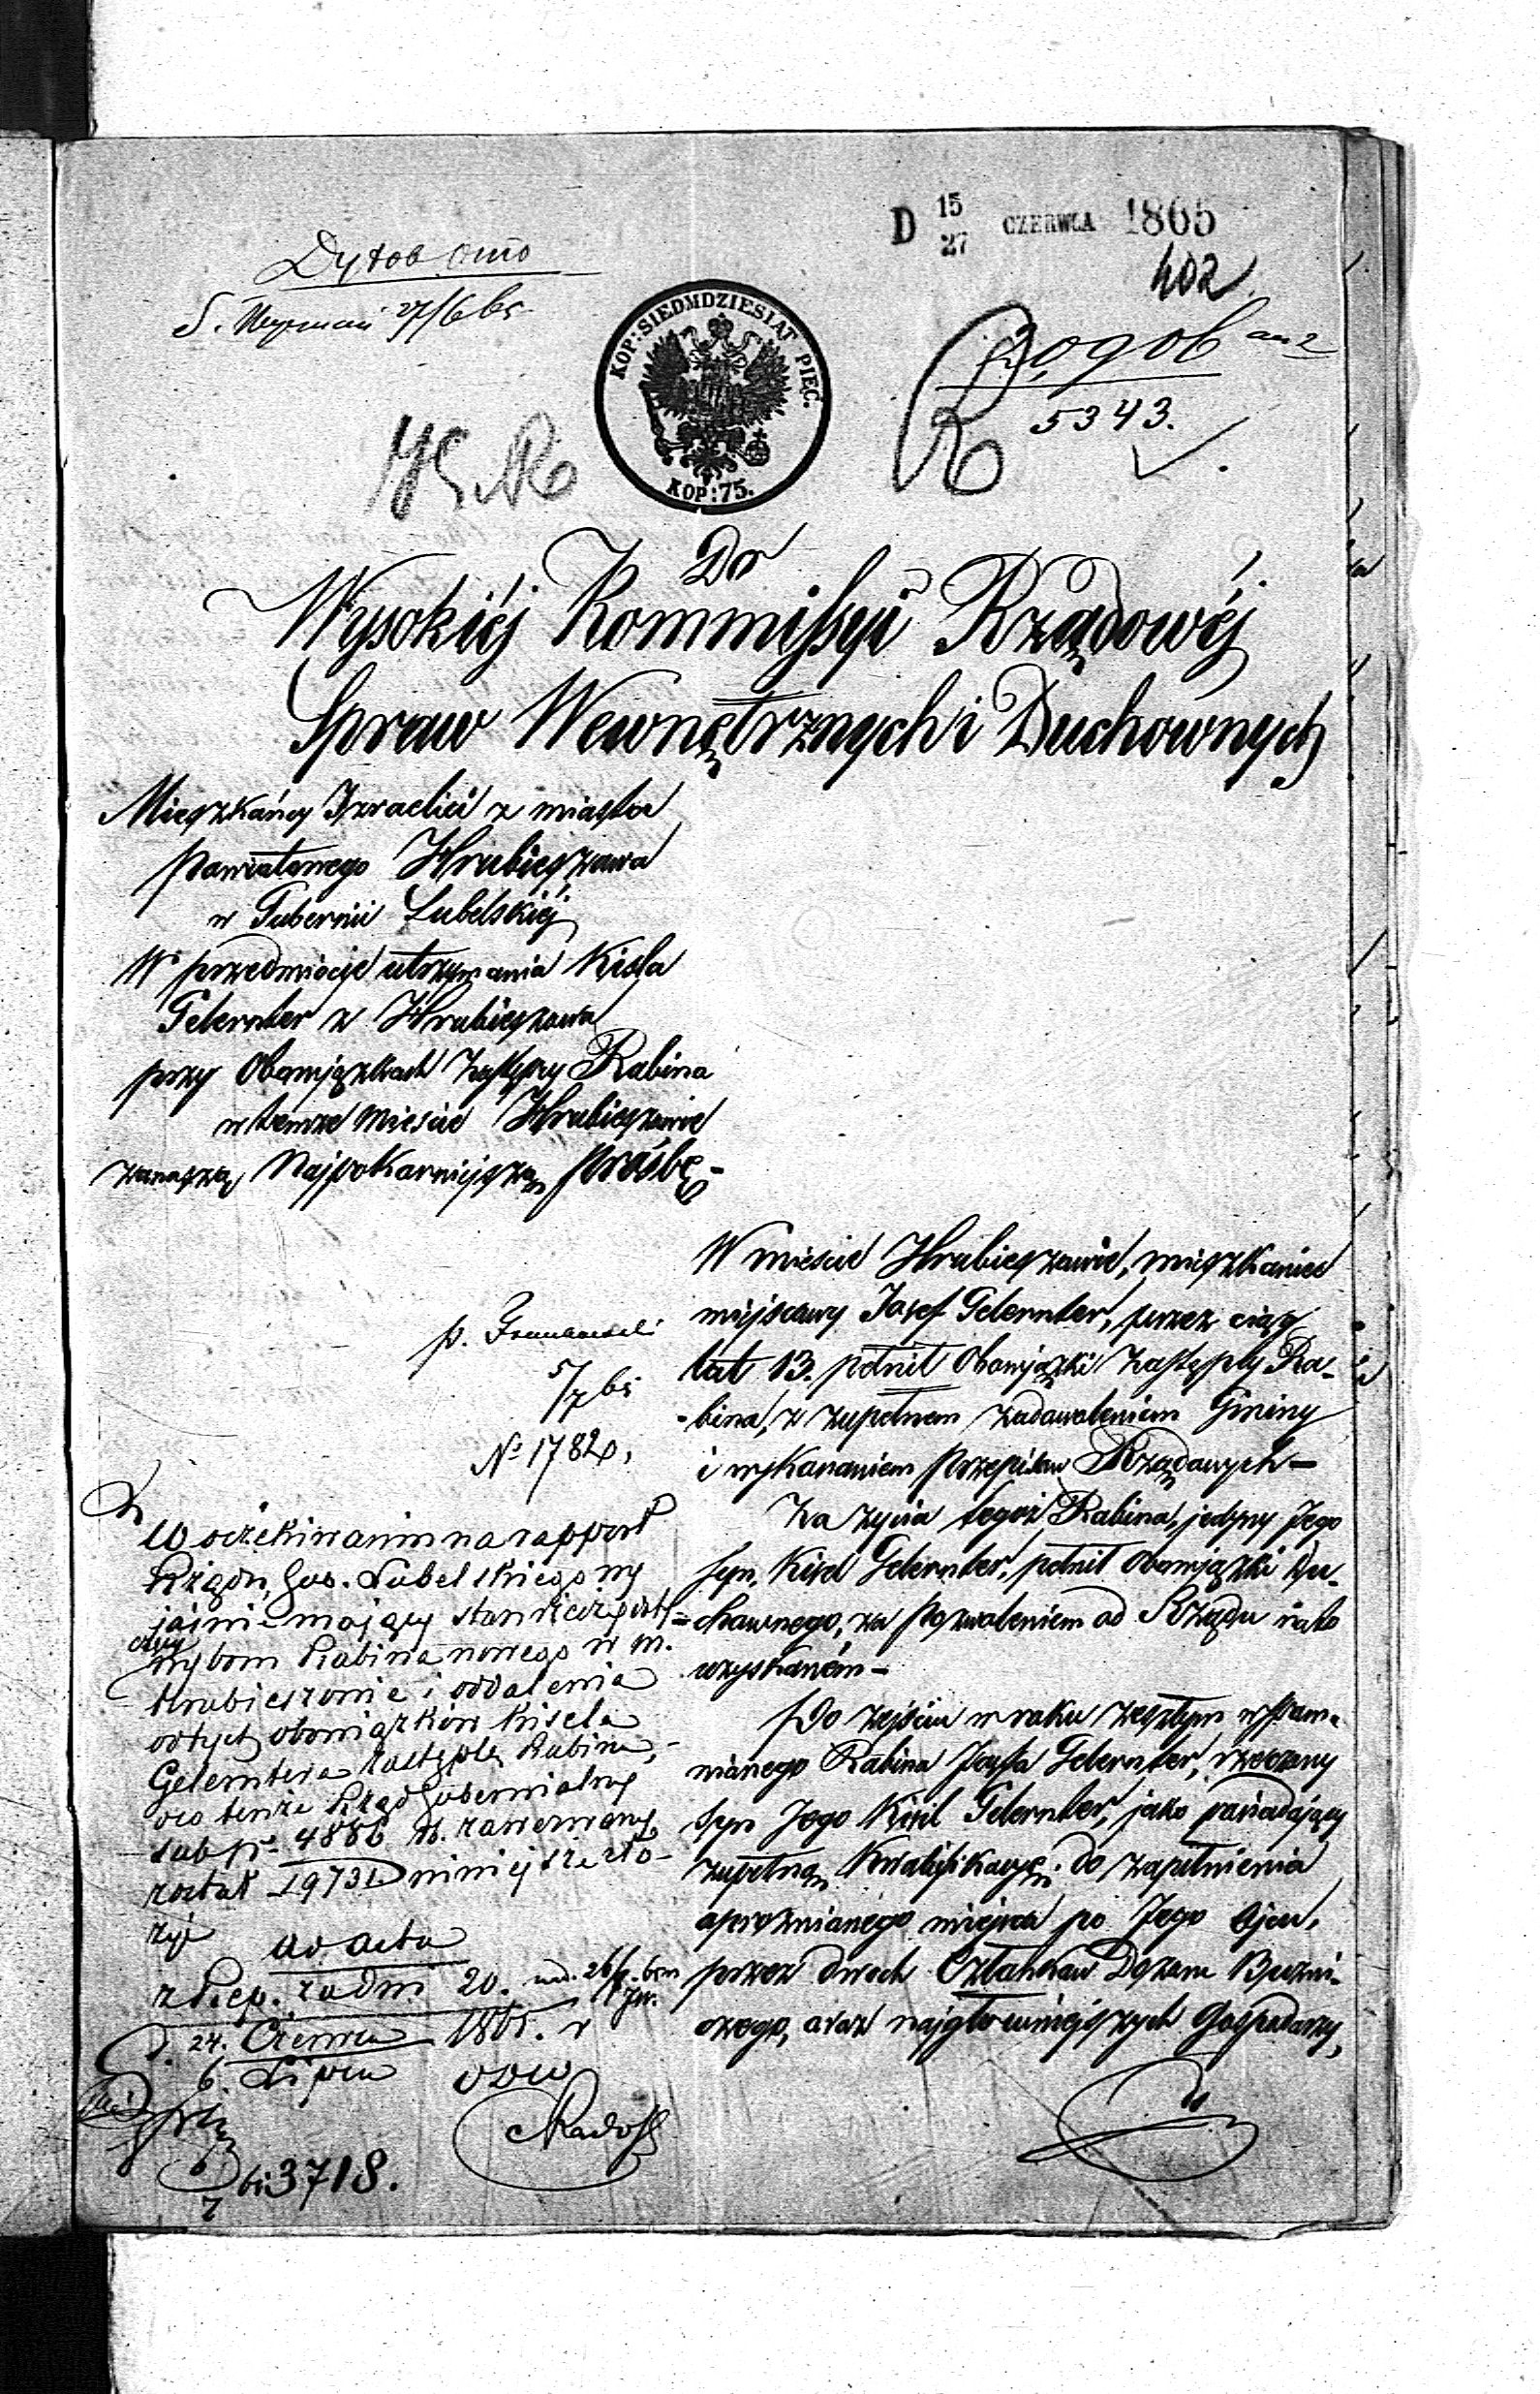 D 15/27 CZERWCA 1865
402
S. 27/6 65
KOP: SIEDMDZIESIĄT PIĘĆ.
KOP: 75.
5343.
Do
Wysokiéj Kommissyi Rządowéj
Spraw Wewnętrznych i Duchownych
Mieszkańcy Izraelici z miasta
powiatowego Hrubieszowa
w Gubernii Lubelskiéj
W przedmiocie utrzymania Kisla
Gelernter z Hrubieszowa
przy Obowiązkach Zastępcy Rabina
w temże mieście Hrubieszowie
zanaszą Najpokorniejszą prośbę –
W mieście Hrubieszowie, mieszkaniec
miejscowy Josef Gelernter, przez ciąg
lat 13. pełnił Obowiązki Zastępcy Ra-
-bina, z zupełnem zadowoleniem Gminy
i wykonaniem Przepisów Rządowych –
Za życia tegoż Rabina, jedyny Jego
Syn, Kisel Gelernter, pełnił obowiązki Du-
-chownego, za pozwoleniem od Rządu na to
uzyskaném –
Po zejściu w roku zeszłym wspom-
nianego Rabina Josfa Gelernter, rzeczony
Syn Jego Kisel Gelernter, jako posiadający
zupełną Kwalifikacyę do zapełnienia
opróżnianego miejsca po Jego Ojcu,
przez dwóch Członków Dozoru Bóżni-
czego, oraz najgłówniejszych Gospodarzy,
p.
5/7 65
N. 17820.
W oczekiwaniu na rapport
Rządu Gub. Lubelskiego wy
jaśnić mający stan rzeczy
wyboru Rabina nowego w m.
Hrubieszowie i oddalenia
od tych obowiązków Kisela
Gelerntera Zastępcę Rabina,
do tenże Rząd Gubernialny
sub N. 4886 zawezwany
został 19731 niniejsze zło-
żyć ad acta
z Rep. za dni 20.
d. 24. Czerwca 1865. r
6. Lipca
3718.